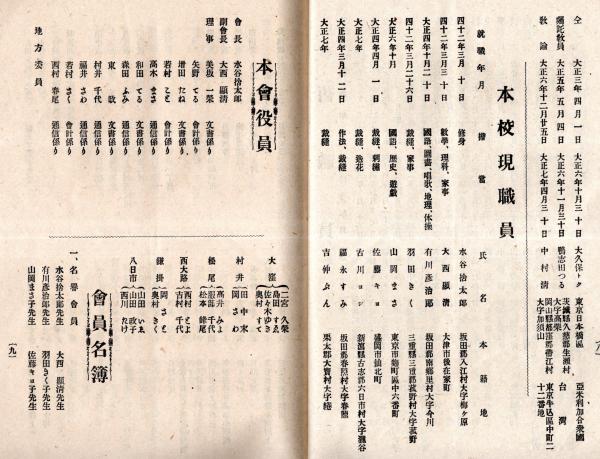 仝 大正三年四月一日 大正六年十月三十日 大久保トク 東京日本橋區 亞米利加合衆國
囑託教員 大正五年五月四日 大正六年十一月三十日 鴨志田つる 茨城縣久慈郡生瀬村大字高柴 台灣
教諭 大正六年十二月廿五日 大正七年四月三十日 中村清 岡山縣都窪郡帶江村大字加須山 東京牛込區中町二十二番地
本校現職員
就職年月 擔當 氏名 本籍地
四十二年三月十日 修身 水谷捨太郎 坂田郡入江村大字梅ヶ原
四十二年三月三十日 數學、理科、家事 大西顯清 大津市後在家町
大正四年十月二十日 國語、圖畵、唱歌、地理、体操 有川彦治郎 坂田郡南郷里村大字今川
四十二年三月二十六日 裁縫、家事 羽田きく 三重縣三重郡菰野村大字菰野
大正六年十月 國語、歴史、遊戯 山岡まさ 東京市麹町區中六番町
大正四年四月一日 裁縫、刺繍 佐藤キヨ 盛岡市仙北町
大正七年 裁縫、造花 古川ヨシ 新潟縣古志郡六日市村大字瀧谷
大正四年三月十二日 作法、裁縫 福永すみ 坂田郡春照村大字春照
大正七年 裁縫 吉仲ぶん 栗太郡大寶村大字綣
本會役員
會長 水谷捨太郎
副會長 大西顯清
理事 美坂一榮 文書係り
矢野てる 會計係り
増田たね 文書係り
若村こと 會計係り
高木まさ 通信係り
和田てる 文書係り
森田ふみ 通信係り
東歌 文書係り
村井千代 通信係り
福井さわ 通信係り
若村さく 會計係り
西村春尾 通信係り
地方委員
大窪 二宮久榮
島田ゑ
佐々木ゆき
奥村すて
村井 田中末
岡さわ
松尾 高井みよ
服部千代
松本緣尾
西大路 西村千代
吉村
鎌掛 岡さと
奥村きく
八日市 山田いゑ
山田政子
西川たけ
會員名簿
一、名譽會員
水谷捨太郎先生 大西顯清先生
有川彦治郎先生 羽田きく子先生
山岡まさ子先生 佐藤キヨ子先生
〔九〕